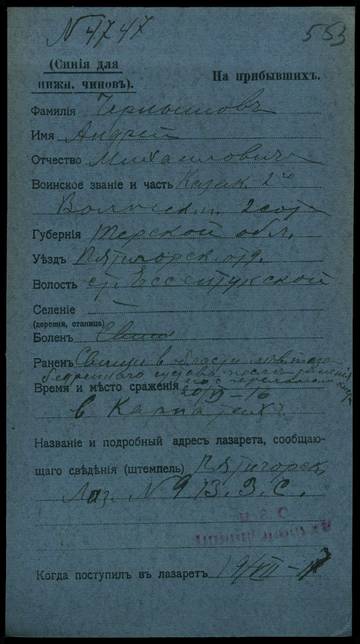 N 4747
553
(Синія для
нижн. чиновъ).
На прибывшихъ.
Фамилія
Имя Андрей
Отчество Михаиловичъ
Воинское званіе и часть Казак. 2го
Волжск. п. 2 сот
Губернія Терской обл.
Уѣздъ Пятигорск. отд.
Волость ст. Ессентукской
Селеніе
(деревня, станица)
Боленъ
Раненъ Свищи в области
сустава после
Время и мѣсто сраженія
в Карпатахъ
Названіе и подробный адресъ лазарета, сообщаю-
щаго свѣдѣнія (штемпель) Пятигорск.
Лаз. N 9 В.З.С.
Когда поступилъ въ лазаретъ 19/VII-17